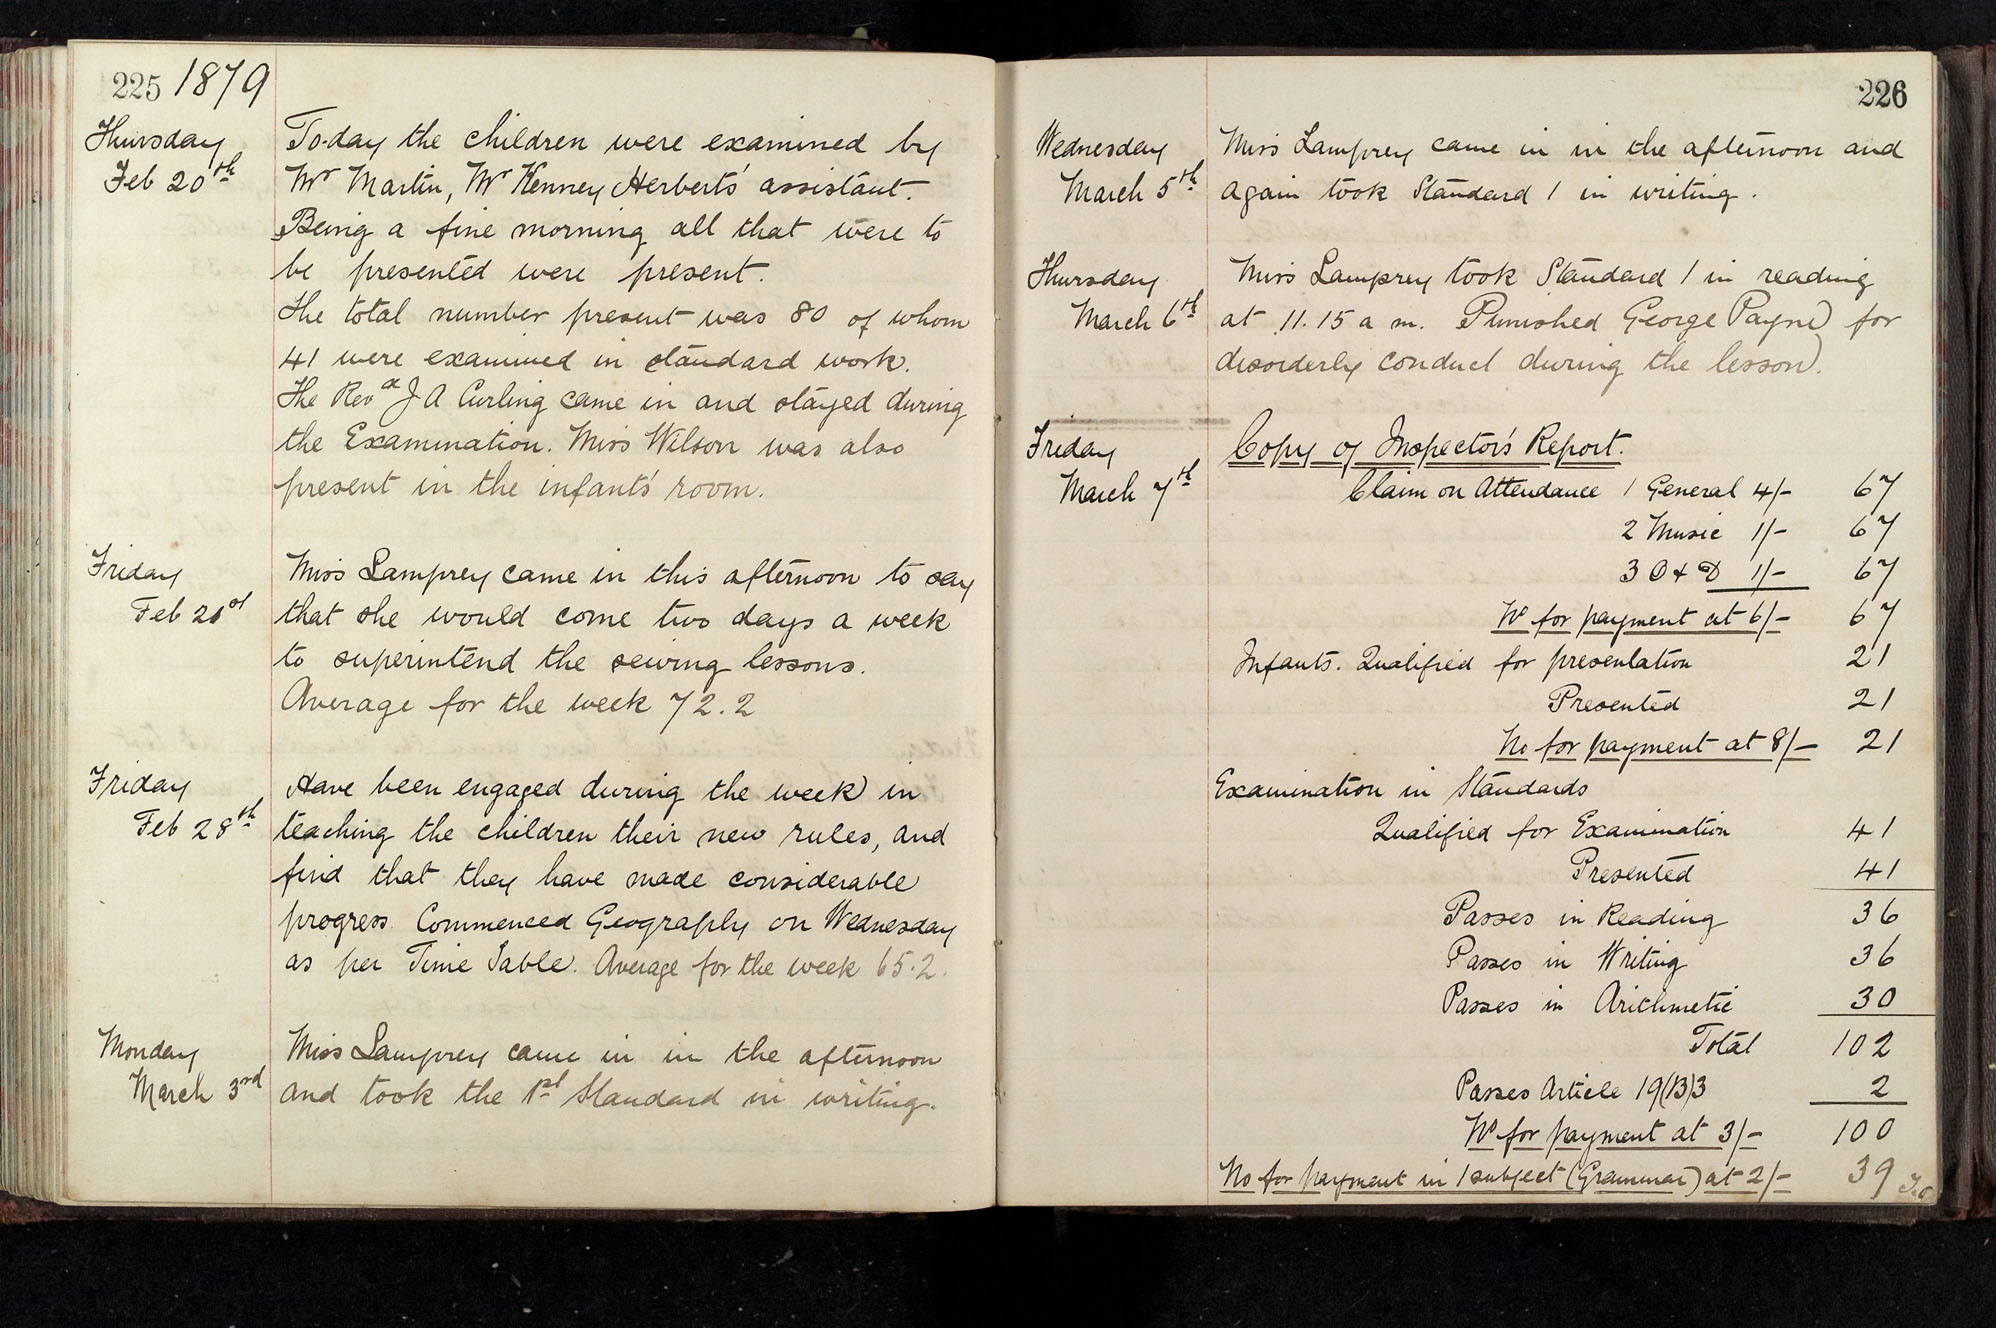 225 1879
Thursday
Feb 20th
To-day the children were examined by
Mr Martin, Mr Kenney Herberts' assistant.
Being a fine morning all that were to
be presented were present.
The total number present was 80 of whom
41 were examined in standard work.
The Revd J A Curling came in and stayed during
the Examination. Miss Wilson was also
present in the infants' room.
Friday
Feb 21st
Miss Lamprey came in this afternoon to say
that she would come two days a week
to superintend the sewing lessons.
Average for the week 72.2
Friday
Feb 28th
Have been engaged during the week in
teaching the children their new rules, and
find that they have made considerable
progress. Commenced Geography on Wednesday
as per Time Table. Average for the week 65.2.
Monday
March 3rd
Miss Lamprey came in in the afternoon
and took the 1st Standard in writing.
226
Wednesday
March 5th
Miss Lamprey came in in the afternoon and
again took Standard 1 in writing.
Thursday
March 6th
Miss Lamprey took Standard 1 in reading
at 11.15 a m. Punished George Payne for
disorderly conduct during the lesson.
Friday
March 7th
Copy of Inspector's Report.
Claim on Attendance 1 General 4/- 67
2 Music 1/- 67
3 O & D 1/- 67
No for payment at 6/- 67
Infants. Qualified for presentation 21
Presented 21
No for payment at 8/- 21
Examination in Standards
Qualified for Examination 41
Presented 41
Passes in Reading 36
Passes in Writing 36
Passes in Arithmetic 30
Total 102
Passes Article 19(B)3 2
No for payment at 3/- 100
No for payment in 1 subject (Grammar) at 2/- 39